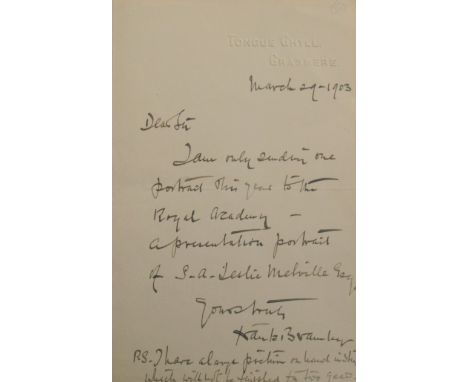 TONGUE GHYLL,
GRASMERE.
March 29 - 1903
Dear Sir
I am only sending one
portrait this year to the
Royal Academy —
a presentation portrait
of S-A-Leslie Melville Esq.
Yours truly
Frank Bramley
P.S. I have a large picture on hand
which will not be finished for two years